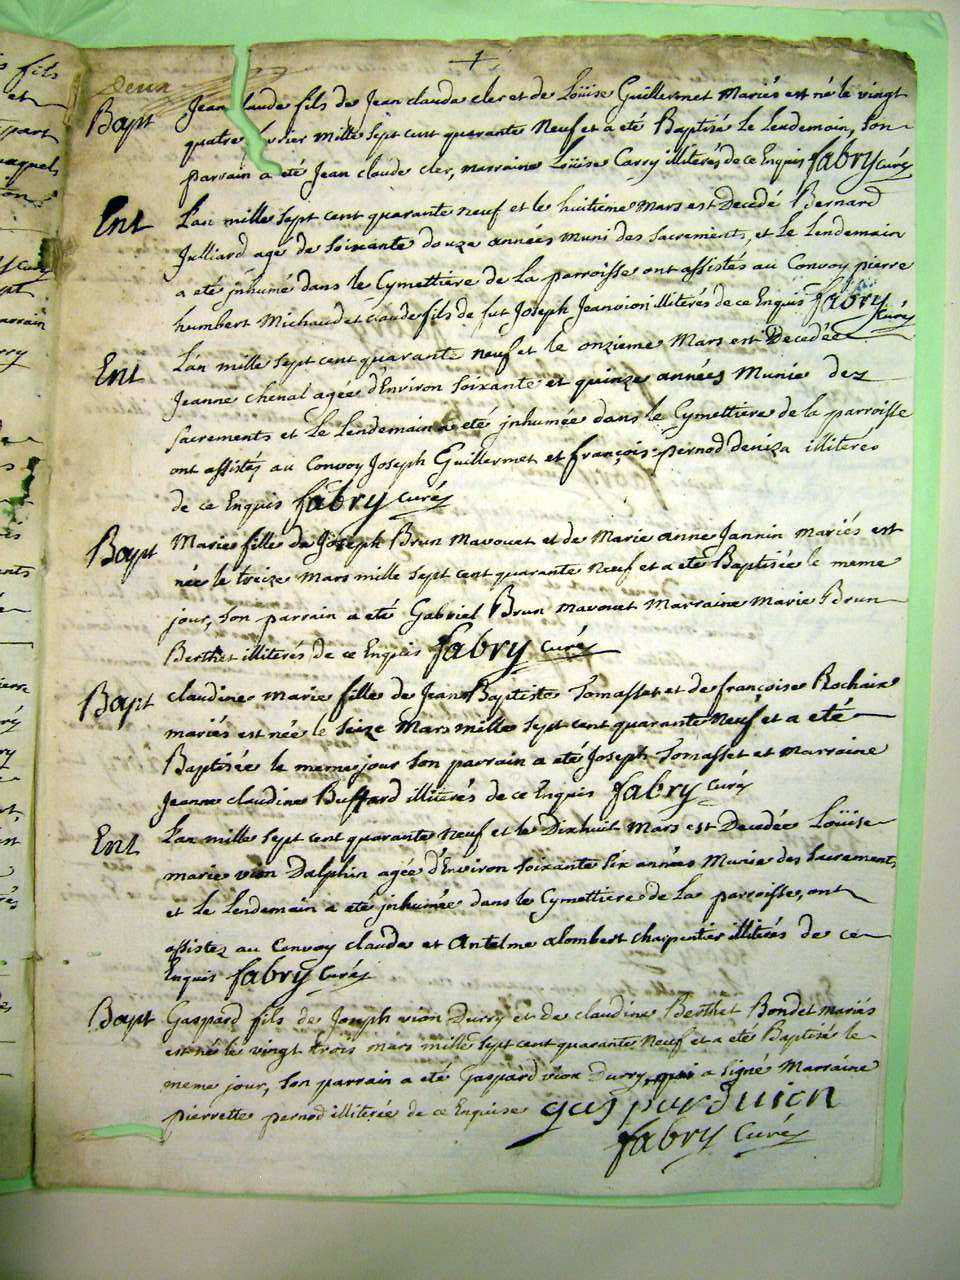 deux
Bapt Jean Claude fils de Jean claude cler et de Loüise Guillermet Mariés est né le vingt
quatre mille sept cent quarante Neuf et a eté Baptisé Le Lendemain, son
parrain a eté Jean claude cler, marraine Loüise Carry illiterés de ce Enquis fabry curé
Ent L'an mille sept cent quarante neuf et le huitieme Mars est Decedé Bernard
Julliard agé de soixante douze années muni des sacrements, et Le Lendemain
a eté jnhumé dans le Cymettiere de La parroisse ont assistés au Convoy pierre
humbert Michaud et claude fils de fut Joseph Jeanvion illiterés de ce Enquis fabry curé
Ent L'an mille sept cent quarante neuf et le onzieme Mars est Decedée
Jeanne chenal agée d'Environ soixante et quinze années Munie des
sacrements et Le Lendemain a eté jnhumée dans le Cymettiere de la parroisse
ont assistés au Convoy Joseph Guillermet et françois pernod deniza illiterés
de ce Enquis fabry curé
Bapt Marie fille de Joseph Brun Mavouet et de Marie anne Jannin mariés est
née le treize mars mille sept cent quarante neuf et a eté Baptisée le meme
jour, son parrain a eté Gabriel Brun mavouet Marraine Marie Brun
Berthet illiterés de ce Enquis fabry curé
Bapt claudine marie fille de Jean Baptiste Tomasset et de françoise Rochaix
mariés est née le seize Mars mille sept cent quarante Neuf et a eté
Baptisée le meme jour son parrain a eté Joseph Tomasset et marraine
Jeanne claudine Buffard illiterés de ce Enquis fabry curé
Ent L'an mille sept cent quarante neuf et le Dixhuit Mars est Decedée Loüise
marie vion Dalphin agée d'Environ soixante six années Munie des sacrements
et Le Lendemain a eté jnhumée dans le Cymettiere de La parroisse, ont
assistez au Convoy claude et antelme alombert charpentier illiterés de ce
Enquis fabry curé
Bapt Gaspard fils de Joseph vion Durry et de claudine Berthet Bondet mariés
est né le vingt trois mars mille sept cent quarante Neuf et a eté Baptisé le
meme jour, son parrain a eté Gaspard vion Durry, qui a signé Marraine
pierrette pernod illiterée de ce Enquise gaspard uion
fabry curé